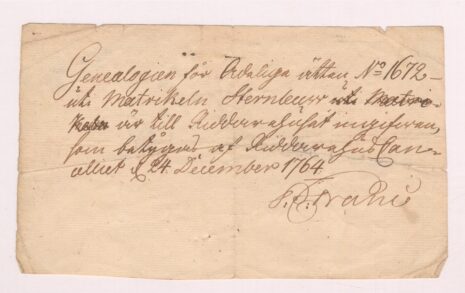 Genealogien för Adeliga ätten, No 1672
uti Matrikeln Sternburr uti Matri-
keln är till Riddarehuset ingifven,
som betygas af Riddarehus Can-
celliet d 24 December 1764